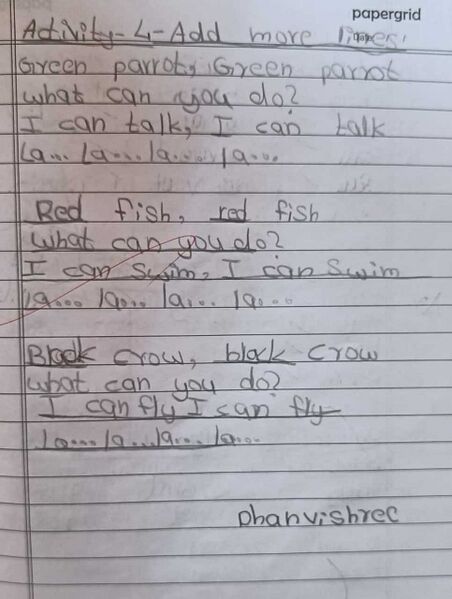 papergrid
Activity-4-Add more lines'
Green parrot, Green parrot
what can you do?
I can talk, I can talk
la... la.... la..... la....
Red fish, red fish
what can you do?
I can swim, I can swim
la.... la... la.... la....
Black crow, black crow
what can you do?
I can fly I can fly
la.... la... la.... la....
Dhanvishree